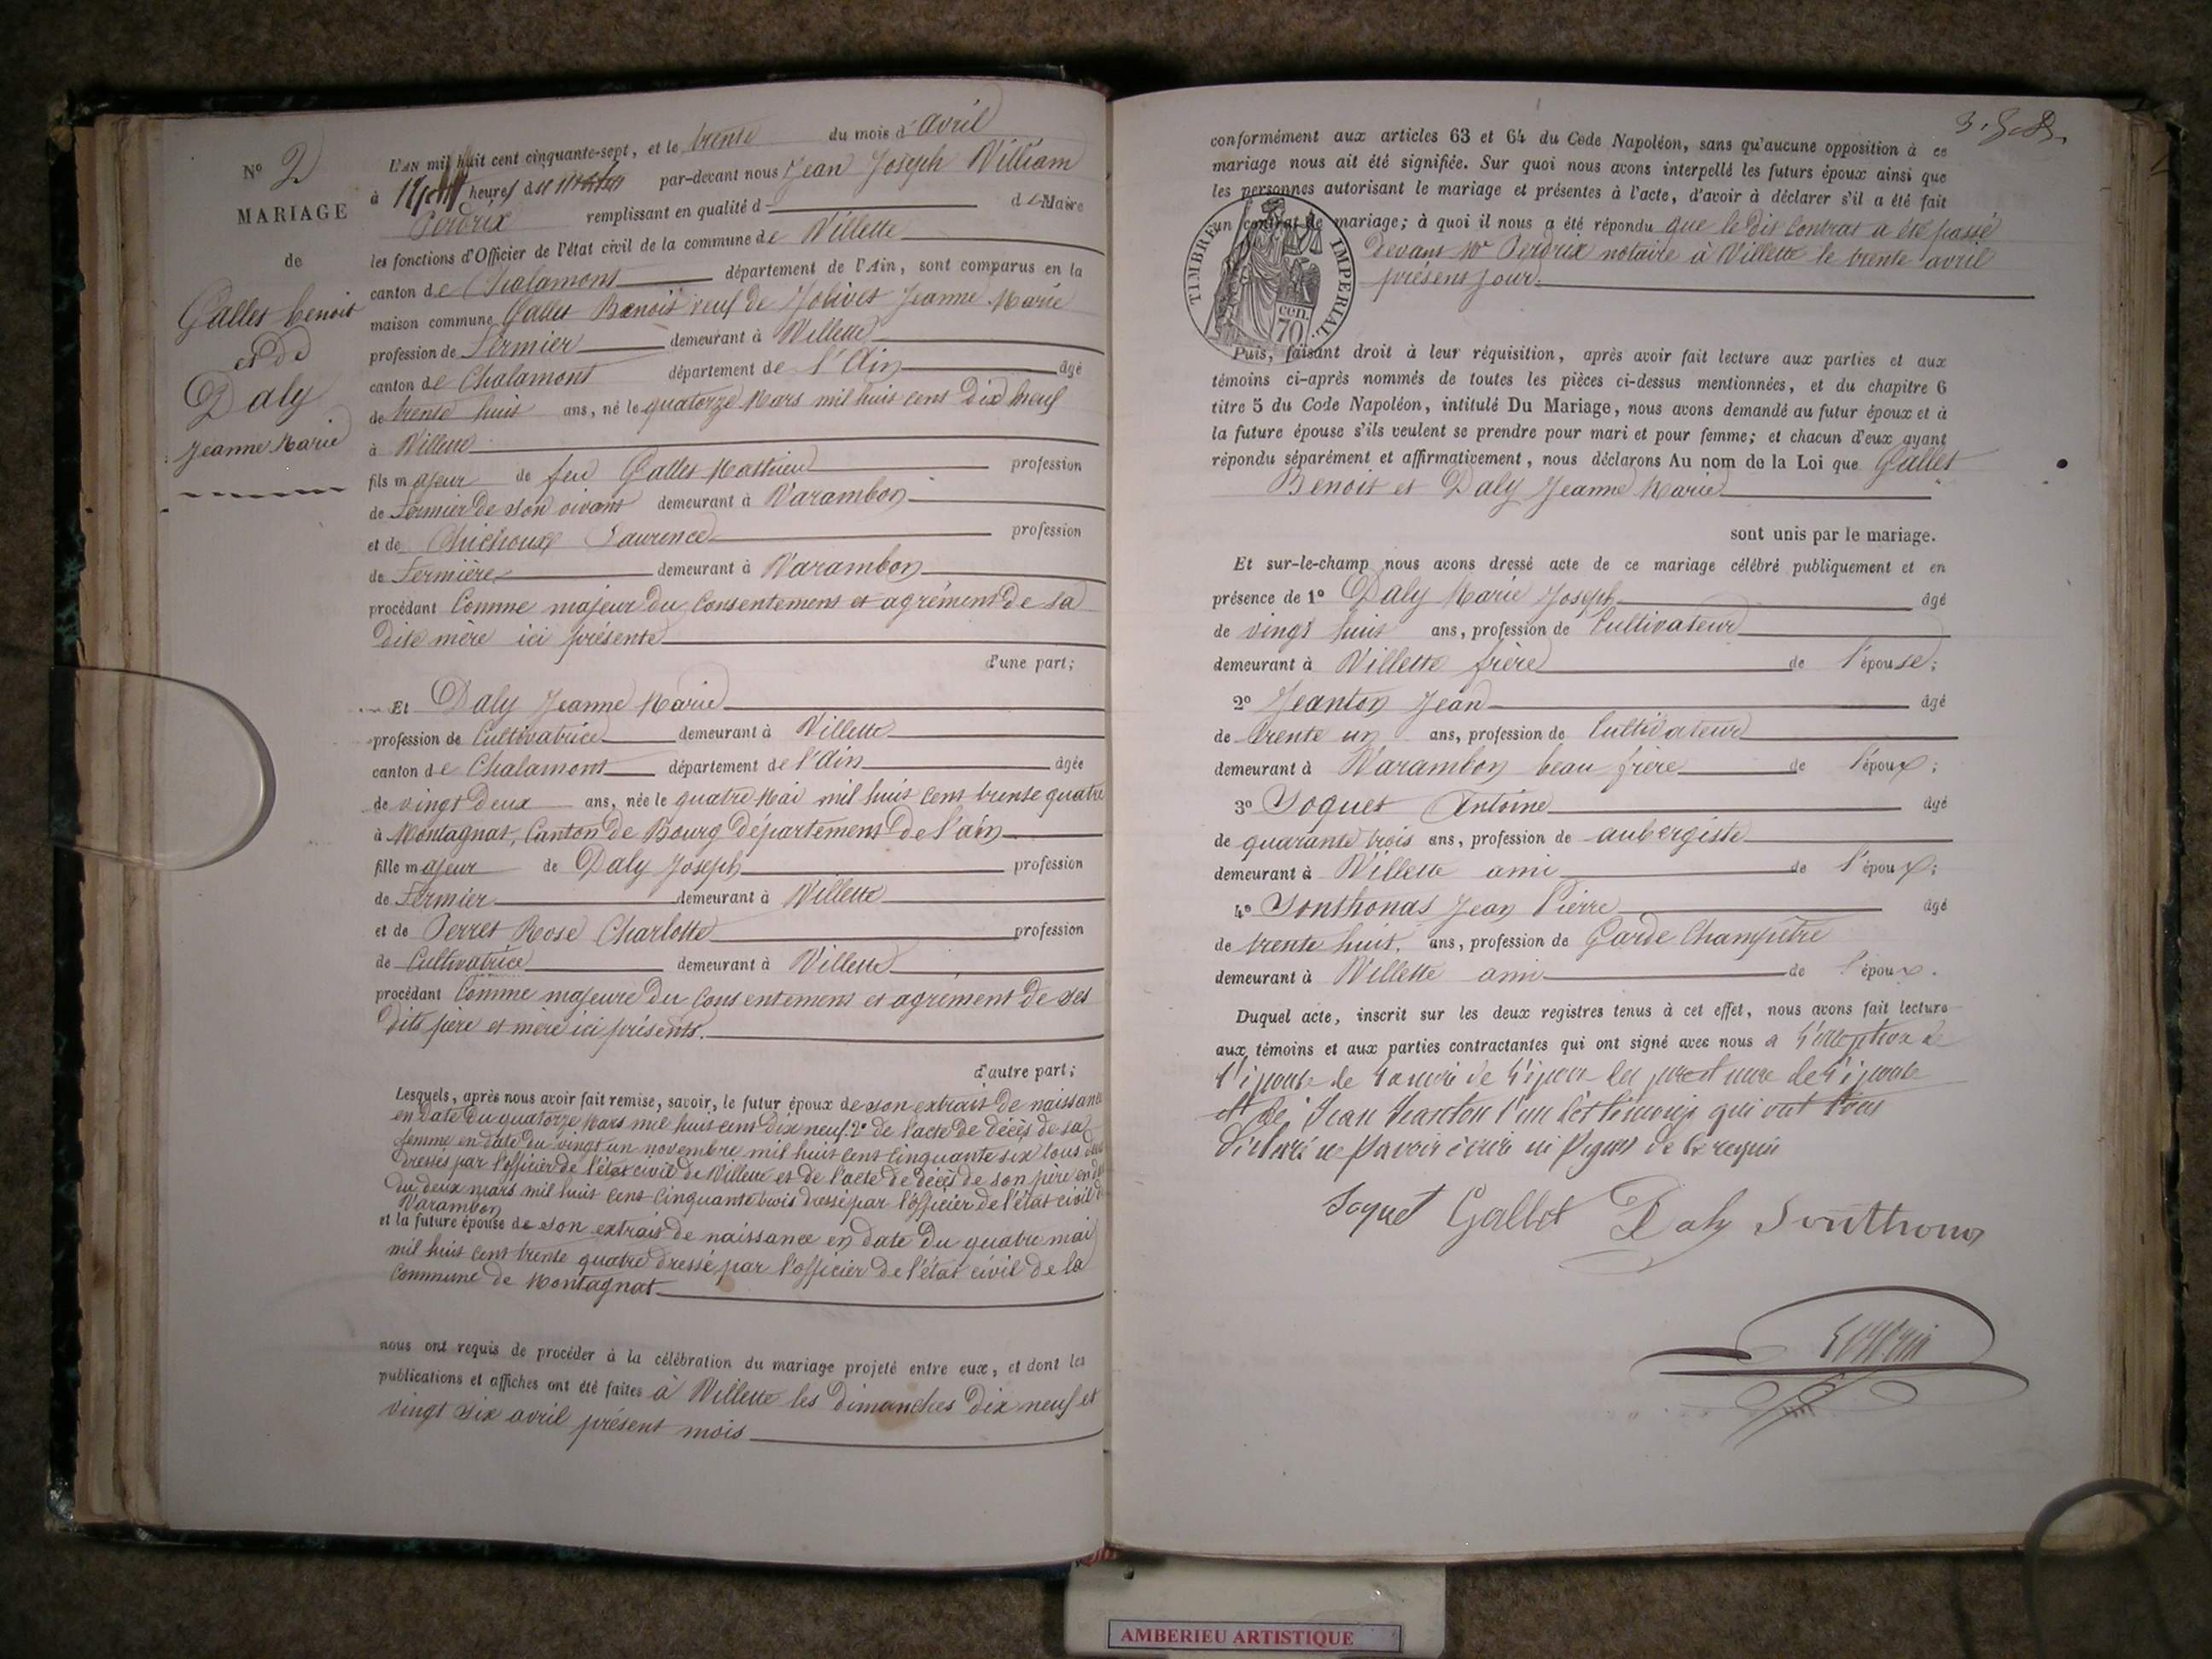 N° 2
MARIAGE
de
Gallet benoit
et de
Daly
Jeanne Marie
L'AN mil huit cent cinquante-sept, et le trente du mois d'avril
à heures du par-devant nous Jean Joseph William
Perdrix remplissant en qualité d de Maire
les fonctions d'Officier de l'état civil de la commune de Villette
canton de Chalamont département de l'Ain, sont comparus en la
maison commune Gallet Benoit veuf de Jolivet Jeanne Marie
profession de Fermier demeurant à Villette
canton de Chalamont département de l'Ain âgé
de trente huit ans, né le quatorze Mars mil huit cent Dix neuf
à Villette
fils majeur de feu Gallet Mathieu profession
de Fermier de son vivant demeurant à Varambon
et de Chichoux Laurence profession
de Fermière demeurant à Varambon
procédant Comme majeur du Consentement et agrément de sa
dite mère ici présente
d'une part;
Et Daly Jeanne Marie
profession de Cultivatrice demeurant à Villette
canton de Chalamont département de l'Ain âgée
de vingt deux ans, née le quatre Mai mil huit cent trente quatre
à Montagnat, Canton de Bourg département de l'ain
fille majeur de Daly Joseph profession
de Fermier demeurant à Villette
et de Perret Rose Charlotte profession
de Cultivatrice demeurant à Villette
procédant Comme majeure du Consentement et agrément de ses
dits père et mère ici présents.
d'autre part;
Lesquels, après nous avoir fait remise, savoir, le futur époux de son extrait de naissance
en date du quatorze Mars mil huit cent dix neuf 2° de l'acte de décès de sa
femme en date du vingt un novembre mil huit cent cinquante six tous deux
dressés par l'officier de l'état civil de Villette et de l'acte de décès de son père en date
du deux mars mil huit cent cinquante trois dressé par l'officier de l'état civil de
Varambon
et la future épouse de son extrait de naissance en date du quatre mai
mil huit cent trente quatre dressé par l'officier de l'état civil de la
Commune de Montagnat
nous ont requis de procéder à la célébration du mariage projeté entre eux, et dont les
publications et affiches ont été faites à Villette les dimanches dix neuf et
vingt six avril présent mois
conformément aux articles 63 et 64 du Code Napoléon, sans qu'aucune opposition à ce
mariage nous ait été signifiée. Sur quoi nous avons interpellé les futurs époux ainsi que
les personnes autorisant le mariage et présentes à l'acte, d'avoir à déclarer s'il a été fait
un contrat de mariage; à quoi il nous a été répondu que le dit Contrat a été passé
devant Mr Perdrix notaire à Villette le trente avril
présent jour.
TIMBRE IMPERIAL
70 cen.
Puis, faisant droit à leur réquisition, après avoir fait lecture aux parties et aux
témoins ci-après nommés de toutes les pièces ci-dessus mentionnées, et du chapitre 6
titre 5 du Code Napoléon, intitulé Du Mariage, nous avons demandé au futur époux et à
la future épouse s'ils veulent se prendre pour mari et pour femme; et chacun d'eux ayant
répondu séparément et affirmativement, nous déclarons Au nom de la Loi que Gallet
Benoit et Daly Jeanne Marie
sont unis par le mariage.
Et sur-le-champ nous avons dressé acte de ce mariage célébré publiquement et en
présence de 1° Daly Marie Joseph âgé
de vingt huit ans, profession de Cultivateur
demeurant à Villette frère de l'épouse;
2° Jeanton Jean âgé
de trente un ans, profession de Cultivateur
demeurant à Varambon beau frère de l'époux;
3° Soquet Antoine âgé
de quarante trois ans, profession de aubergiste
demeurant à Villette ami de l'époux;
4° Sonthonas Jean Pierre âgé
de trente huit. ans, profession de Garde Champêtre
demeurant à Villette ami de l'époux.
Duquel acte, inscrit sur les deux registres tenus à cet effet, nous avons fait lecture
aux témoins et aux parties contractantes qui ont signé avec nous à l'exception de
l'épouse de la mère de l'époux les père et mère de l'épouse
et de Jean Jeanton l'un des témoins qui ont tous
déclaré ne savoir écrire ni signer de ce requis
Soquet Gallet Daly Sonthonas
AMBERIEU ARTISTIQUE